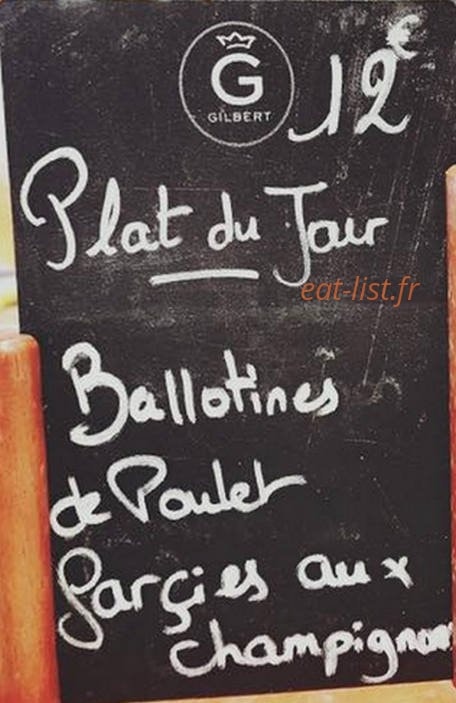 G
GILBERT
12€
Plat du Jour
eat-list.fr
Ballotines
de Poulet
Farçies aux
champignons